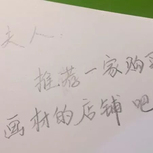 夫人:
推荐一家购买
画材的店铺吧